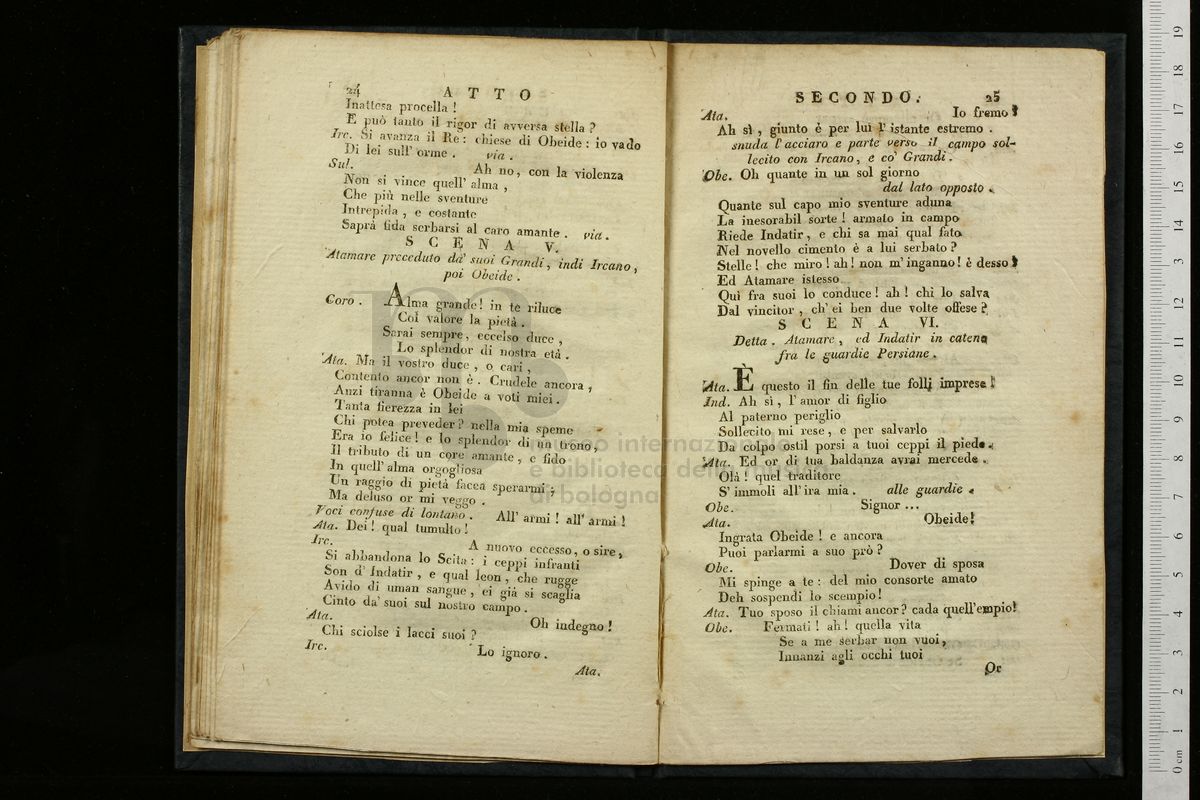 24 ATTO
Inattesa procella !
E può tanto il rigor di avversa stella ?
Irc. Si avanza il Re : chiese di Obeide : io vado
Di lei sull' orme . via .
Sul. Ah no, con la violenza
Non si vince quell' alma ,
Che più nelle sventure
Intrepida , e costante
Saprà fida serbarsi al caro amante . via .
SCENA V.
Atamare preceduto da' suoi Grandi , indi Ircano ,
poi Obeide .
Coro . Alma grande ! in te riluce
Col valore la pietà .
Sarai sempre , eccelso duce ,
Lo splendor di nostra età .
Ata. Ma il vostro duce , o cari ,
Contento ancor non è . Crudele ancora ,
Anzi tiranna è Obeide a voti miei .
Tanta fierezza in lei
Chi potea preveder ? nella mia speme
Era io felice ! e lo splendor di un trono ,
Il tributo di un core amante , e fido
In quell' alma orgogliosa
Un raggio di pietà facea sperarmi ;
Ma deluso or mi veggo .
Voci confuse di lontano . All' armi ! all' armi !
Ata. Dei ! qual tumulto !
Irc. A nuovo eccesso , o sire ,
Si abbandona lo Scita : i ceppi infranti
Son d' Indatir , e qual leon , che rugge
Avido di uman sangue , ei già si scaglia
Cinto da' suoi sul nostro campo .
Ata. Oh indegno !
Chi sciolse i lacci suoi ?
Irc. Lo ignoro .
Ata.
SECONDO. 25
Ata. Io fremo !
Ah sì , giunto è per lui l' istante estremo .
snuda l' acciaro e parte verso il campo sol-
lecito con Ircano , e co' Grandi .
Obe. Oh quante in un sol giorno
dal lato opposto .
Quante sul capo mio sventure aduna
La inesorabil sorte ! armato in campo
Riede Indatir , e chi sa mai qual fato
Nel novello cimento è a lui serbato ?
Stelle ! che miro ! ah ! non m' inganno ! è desso !
Ed Atamare istesso
Quì fra suoi lo conduce ! ah ! chi lo salva
Dal vincitor , ch' ei ben due volte offese ?
SCENA VI.
Detta . Atamare , ed Indatir in catena
fra le guardie Persiane .
Ata. È questo il fin delle tue folli imprese !
Ind. Ah sì , l' amor di figlio
Al paterno periglio
Sollecito mi rese , e per salvarlo
Da colpo ostil porsi a tuoi ceppi il piede .
Ata. Ed or di tua baldanza avrai mercede .
Olà ! quel traditore
S' immoli all' ira mia . alle guardie .
Obe. Signor ...
Ata. Obeide !
Ingrata Obeide ! e ancora
Puoi parlarmi a suo prò ?
Obe. Dover di sposa
Mi spinge a te : del mio consorte amato
Deh sospendi lo scempio !
Ata. Tuo sposo il chiami ancor ? cada quell' empio !
Obe. Fermati ! ah ! quella vita
Se a me serbar non vuoi ,
Innanzi agli occhi tuoi
Or
museo internazionale
e biblioteca della musica
di bologna
0 cm 1 2 3 4 5 6 7 8 9 10 11 12 13 14 15 16 17 18 19